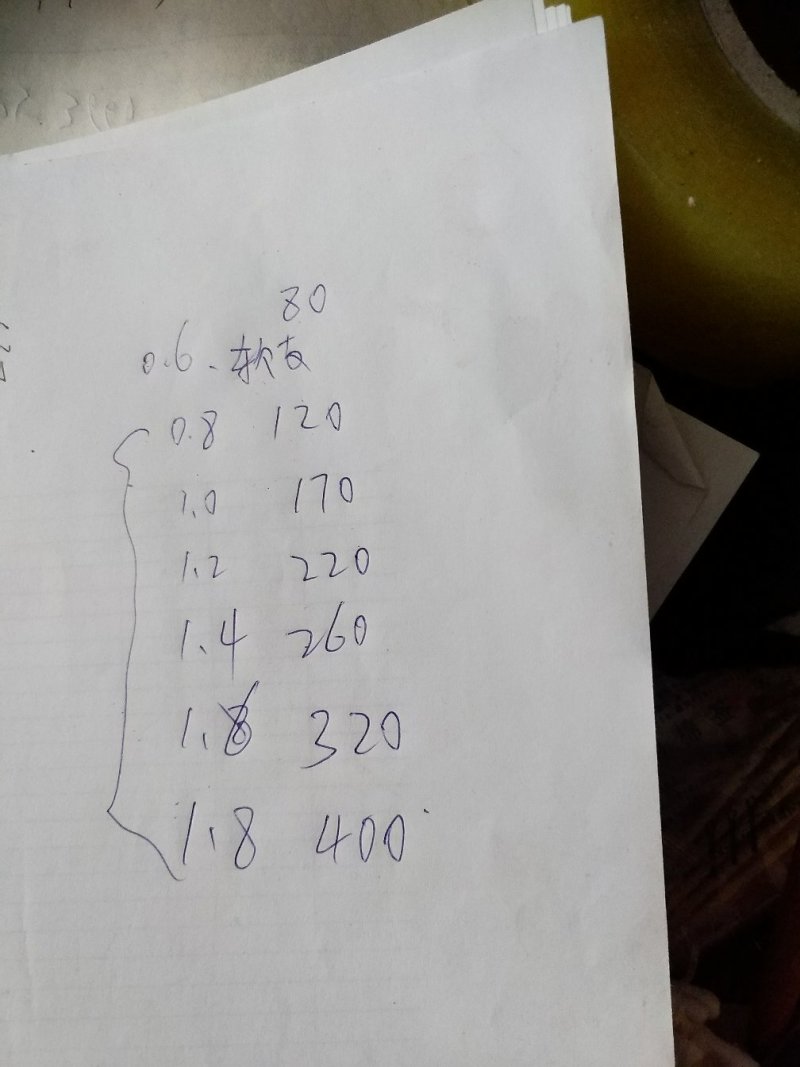 80
0.6. 软支
0.8 120
1.0 170
1.2 220
1.4 260
1. 320
1.8 400